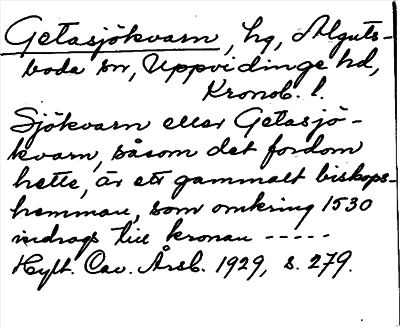 Getasjökvarn, hg, Alguts-
boda sn, Uppvidinge hd,
Kronob. l.
Sjökvarn eller Getasjö-
kvarn, såsom det fordom
hette, är ett gammalt biskops-
hemman, som omkring 1530
indrogs till kronan -----
Hylt. Cav. Årsb. 1929, s. 279.